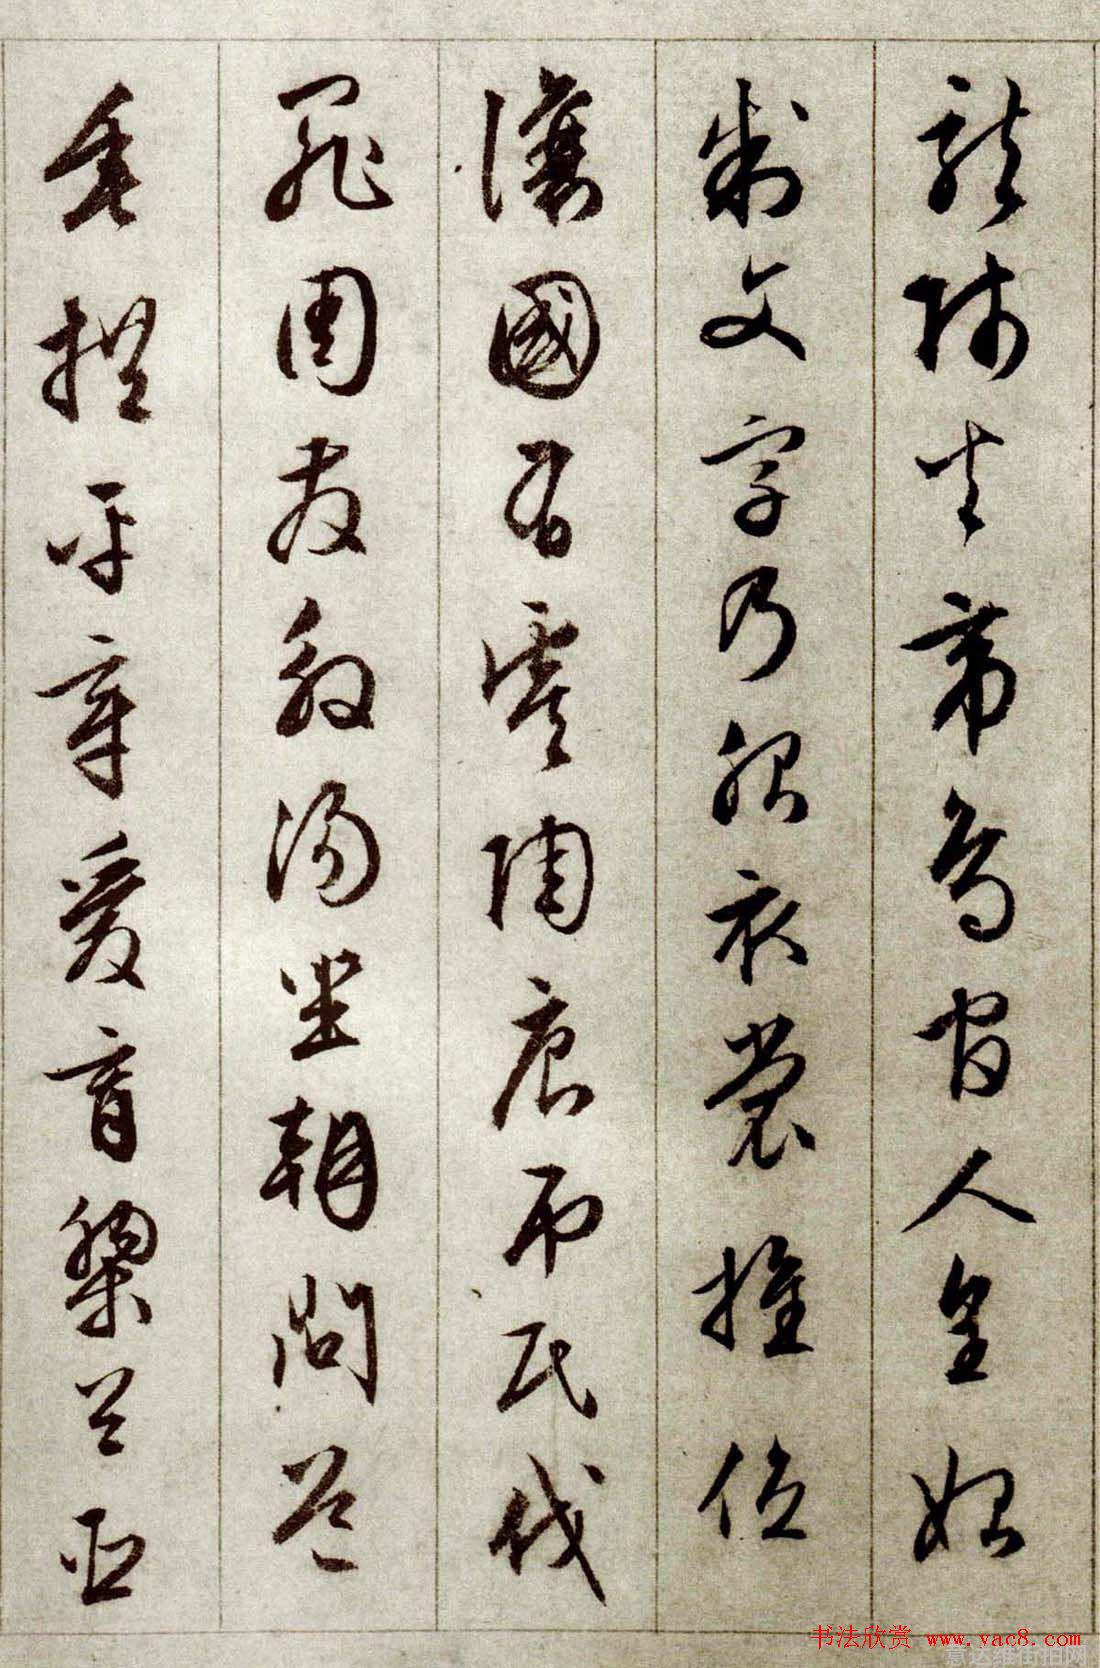 龍師火帝鳥官人皇始
制文字乃服衣裳推位
讓國有虞陶唐弔民伐
罪周發殷湯坐朝問道
垂拱平章愛育黎首臣
书法欣赏 www.yac8.com
意达维街拍网